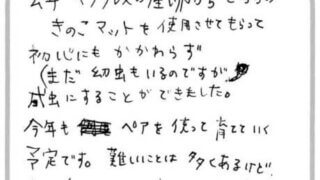 きのこマットを使用させてもらって
初心にもかかわらず
(まだ幼虫もいるのですが
成虫にすることができました。
今年も ペアを使って育てていく
予定です。難しいことは多くあるけど